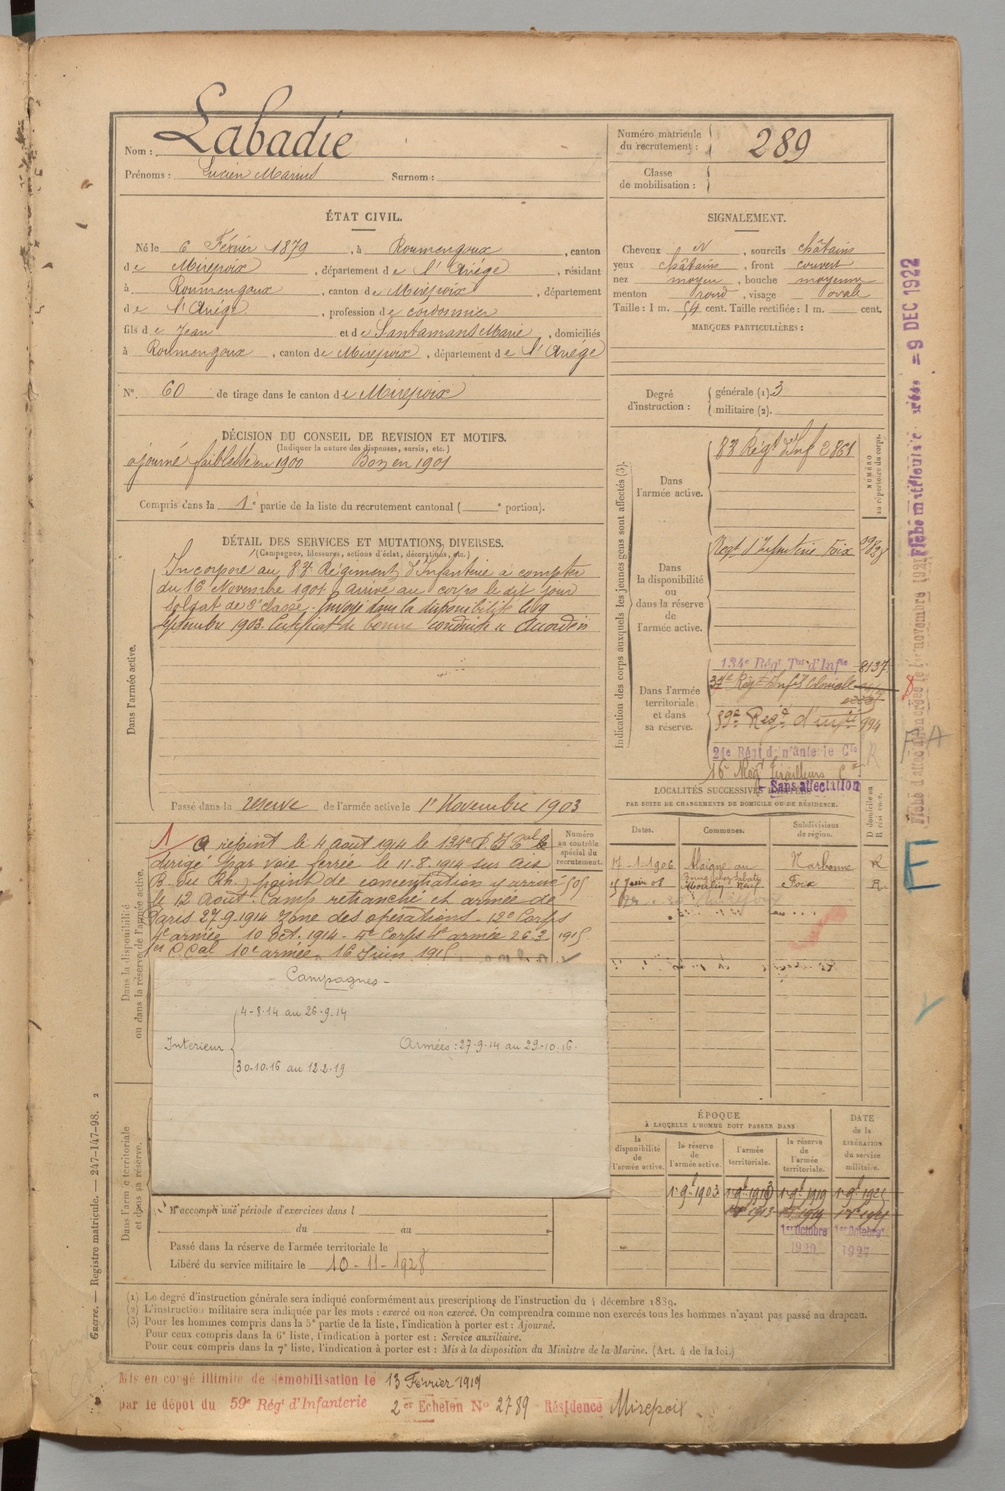 Nom : Labadie
Prénoms : Lucien Marius Surnom :
Numéro matricule du recrutement : 289
Classe de mobilisation :
ÉTAT CIVIL.
Né le 6 Février 1879, à Roumengoux, canton
de Mirepoix, département de l'Ariége, résidant
à Roumengoux, canton de Mirepoix, département
de l'Ariége, profession de cordonnier
fils de Jean et de Santamans Marie, domiciliés
à Roumengoux, canton de Mirepoix, département de l'Ariége
N° 60 de tirage dans le canton de Mirepoix
SIGNALEMENT.
Cheveux N, sourcils châtains
yeux châtains, front couvert
nez moyen, bouche moyenne
menton rond, visage ovale
Taille : 1 m. 54 cent. Taille rectifiée : 1 m. cent.
MARQUES PARTICULIÈRES :
Degré d'instruction : générale (1) 3
militaire (2).
DÉCISION DU CONSEIL DE REVISION ET MOTIFS.
(Indiquer la nature des dispenses, sursis, etc.)
ajourné faiblesse en 1900 Bon en 1901
Compris dans la 1e partie de la liste du recrutement cantonal ( e portion).
DÉTAIL DES SERVICES ET MUTATIONS DIVERSES.
(Campagnes, blessures, actions d'éclat, décorations, etc.)
Dans l'armée active.
Incorporé au 83e Régiment d'Infanterie à compter
du 16 Novembre 1901, arrivé au corps le dit jour
soldat de 2e classe. Envoyé dans la disponibilité le 19
septembre 1903. Certificat de bonne conduite « Accordé »
Passé dans la réserve de l'armée active le 1er Novembre 1903
Indication des corps auxquels les jeunes gens sont affectés (3).
NUMÉRO au répertoire du corps.
Dans l'armée active.
83e Régt d'Inf 2861
Dans la disponibilité ou dans la réserve de l'armée active.
Régt d'Infanterie Foix
Dans l'armée territoriale et dans sa réserve.
134e Régt Tal d'Infie 8137
37e Régt Infie Coloniale
59e Régt d'infie 994
24e Régt d'infanterie Cle
16e Régt Tirailleurs
Sans affectation
Dans la disponibilité ou dans la réserve de l'armée active.
A rejoint le 4 août 1914 le 134e R.I.
dirigé par voie ferrée le 11.8.1914 sur Aix
B. du Rh. point de concentration y arrivé
le 12 août. Camp retranché et armée de
Paris 27.9.1914 Zone des opérations. 12e Corps
4e armée 10 oct. 1914. 4e armée 26.3
1915
10e armée 16 Juin 1915
Numéro au contrôle spécial du recrutement.
505
- Campagnes -
Interieur
4-8-14 au 26-9-14
Armées : 27-9-14 au 29-10-16
30-10-16 au 12-2-19
LOCALITÉS SUCCESSIVES HABITÉES
PAR SUITE DE CHANGEMENTS DE DOMICILE OU DE RÉSIDENCE.
Dates. Communes. Subdivisions de région. D domicile ou R résidence.
17-1-1906 Narbonne R
15 Juin 08 Foix R
ÉPOQUE
À LAQUELLE L'HOMME DOIT PASSER DANS
la disponibilité de l'armée active.
la réserve de l'armée active.
l'armée territoriale.
la réserve de l'armée territoriale.
DATE de la LIBÉRATION du service militaire.
1er 9bre 1903
1er Octobre 1920
1er Octobre 1927
Dans l'armée territoriale et dans sa réserve.
A accompli une période d'exercices dans l
du au
Passé dans la réserve de l'armée territoriale le
Libéré du service militaire le 10-11-1928
(1) Le degré d'instruction générale sera indiqué conformément aux prescriptions de l'instruction du 4 décembre 1889.
(2) L'instruction militaire sera indiquée par les mots : exercé ou non exercé. On comprendra comme non exercés tous les hommes n'ayant pas passé au drapeau.
(3) Pour les hommes compris dans la 3e partie de la liste, l'indication à porter est : Ajourné.
Pour ceux compris dans la 6e liste, l'indication à porter est : Service auxiliaire.
Pour ceux compris dans la 7e liste, l'indication à porter est : Mis à la disposition du Ministre de la Marine. (Art. 4 de la loi.)
Mis en congé illimité de démobilisation le 13 Février 1919
par le dépôt du 59e Régt d'Infanterie 2e Echelon No 2789 - Résidence Mirepoix
Guerre. — Registre matricule. — 247-147-98. 2
9 DEC 1922
E